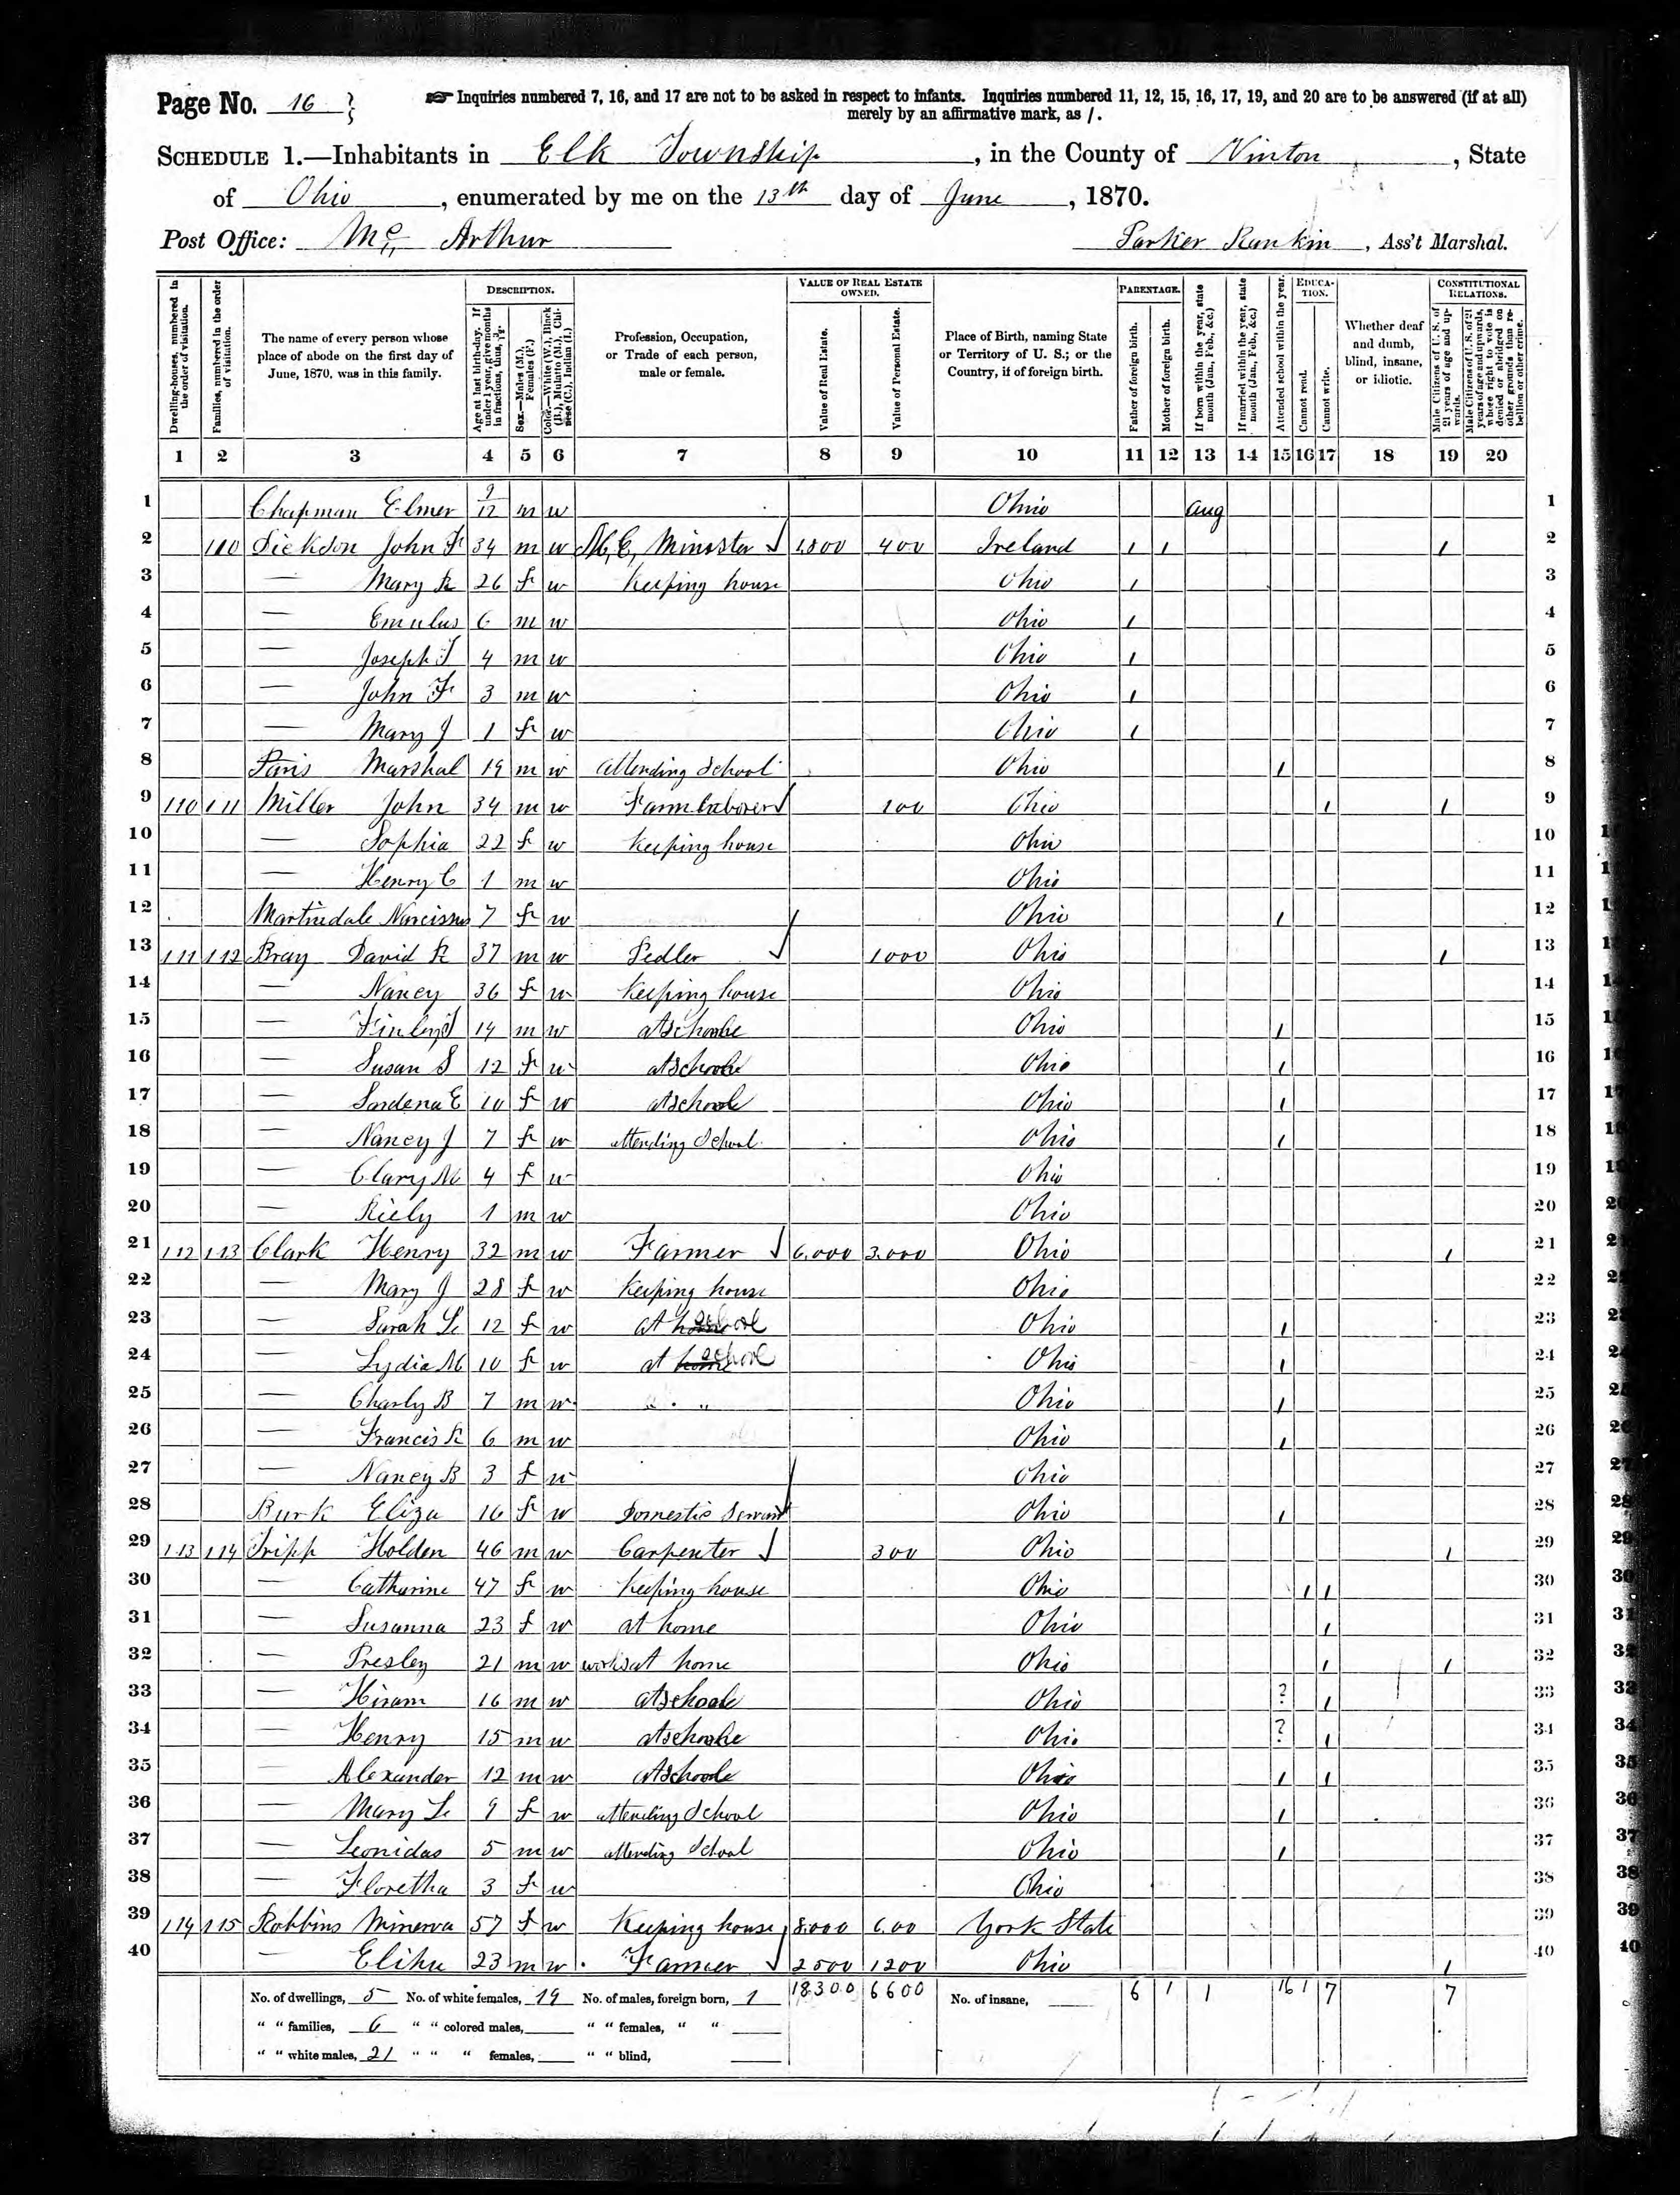 Page No. 16 ☞ Inquiries numbered 7, 16, and 17 are not to be asked in respect to infants. Inquiries numbered 11, 12, 15, 16, 17, 19, and 20 are to be answered (if at all)
merely by an affirmative mark, as /.
SCHEDULE 1.—Inhabitants in Elk Township, in the County of Vinton, State
of Ohio, enumerated by me on the 13th day of June, 1870.
Post Office: Mc Arthur Parker Rankin, Ass't Marshal.
Dwelling-houses, numbered in the order of visitation.
Families, numbered in the order of visitation.
The name of every person whose place of abode on the first day of June, 1870, was in this family.
DESCRIPTION.
Age at last birth-day. If under 1 year, give months in fractions, thus, 3/12.
Sex.—Males (M.), Females (F.)
Color.—White (W.), Black (B.), Mulatto (M.), Chinese (C.), Indian (I.)
Profession, Occupation, or Trade of each person, male or female.
VALUE OF REAL ESTATE OWNED.
Value of Real Estate.
Value of Personal Estate.
Place of Birth, naming State or Territory of U. S.; or the Country, if of foreign birth.
PARENTAGE.
Father of foreign birth.
Mother of foreign birth.
If born within the year, state month (Jan., Feb., &c.)
If married within the year, state month (Jan., Feb., &c.)
Attended school within the year.
EDUCATION.
Cannot read.
Cannot write.
Whether deaf and dumb, blind, insane, or idiotic.
CONSTITUTIONAL RELATIONS.
Male Citizens of U. S. of 21 years of age and upwards.
Male Citizens of U. S. of 21 years of age and upwards, where right to vote is denied or abridged on other grounds than rebellion or other crime.
1 2 3 4 5 6 7 8 9 10 11 12 13 14 15 16 17 18 19 20
1 Chapman Elmer 9/12 m w Ohio Aug 1
2 110 Dickson John F 34 m w M, E, Minister 1,800 400 Ireland / / / 2
3 — Mary R 26 f w Keeping house Ohio / 3
4 — Emulus 6 m w Ohio / 4
5 — Joseph T 4 m w Ohio / 5
6 — John F 3 m w Ohio / 6
7 — Mary J 1 f w Ohio / 7
8 Marshal 19 m w attending School Ohio / 8
9 110 111 Miller John 34 m w Farm Laborer 100 Ohio / / 9
10 — Sophia 22 f w Keeping house Ohio 10
11 — Henry C 1 m w Ohio 11
12 Martindale Narcissus 7 f w Ohio / 12
13 111 112 Bray David R 37 m w Pedler 1000 Ohio / 13
14 — Nancy 36 f w Keeping house Ohio 14
15 — Finley J 14 m w at schoole Ohio / 15
16 — Susan S 12 f w at schoole Ohio / 16
17 — Sardena E 10 f w at schoole Ohio / 17
18 — Nancy J 7 f w attending School Ohio / 18
19 — Clary M 4 f w Ohio 19
20 — Riely 1 m w Ohio 20
21 112 113 Clark Henry 32 m w Farmer 6,000 3,000 Ohio / 21
22 — Mary J 28 f w Keeping house Ohio 22
23 — Sarah L 12 f w at school Ohio / 23
24 — Lydia M 10 f w at school Ohio / 24
25 — Charly B 7 m w " " Ohio / 25
26 — Francis R 6 m w Ohio / 26
27 — Nancy B 3 f w Ohio 27
28 Burk Eliza 16 f w Domestic Servant Ohio / 28
29 113 114 Tripp Holden 46 m w Carpenter 300 Ohio / 29
30 — Catharine 47 f w Keeping house Ohio / / 30
31 — Susanna 23 f w at home Ohio / 31
32 — Presley 21 m w works at home Ohio / / 32
33 — Hiram 16 m w at schoole Ohio ? / 33
34 — Henry 15 m w at schoole Ohio ? / 34
35 — Alexander 12 m w at schoole Ohio / / 35
36 — Mary L 9 f w attending School Ohio / 36
37 — Leonidas 5 m w attending School Ohio / 37
38 — Floretha 3 f w Ohio 38
39 114 115 Robbins Minerva 57 f w Keeping house 8,000 600 York State 39
40 — Elihu 23 m w Farmer 2500 1200 Ohio / 40
No. of dwellings, 5 No. of white females, 19 No. of males, foreign born, 1 18300 6600 No. of insane, 6 1 1 16 1 7 7
" " families, 6 " " colored males, " " females, " "
" " white males, 21 " " " females, " " blind,